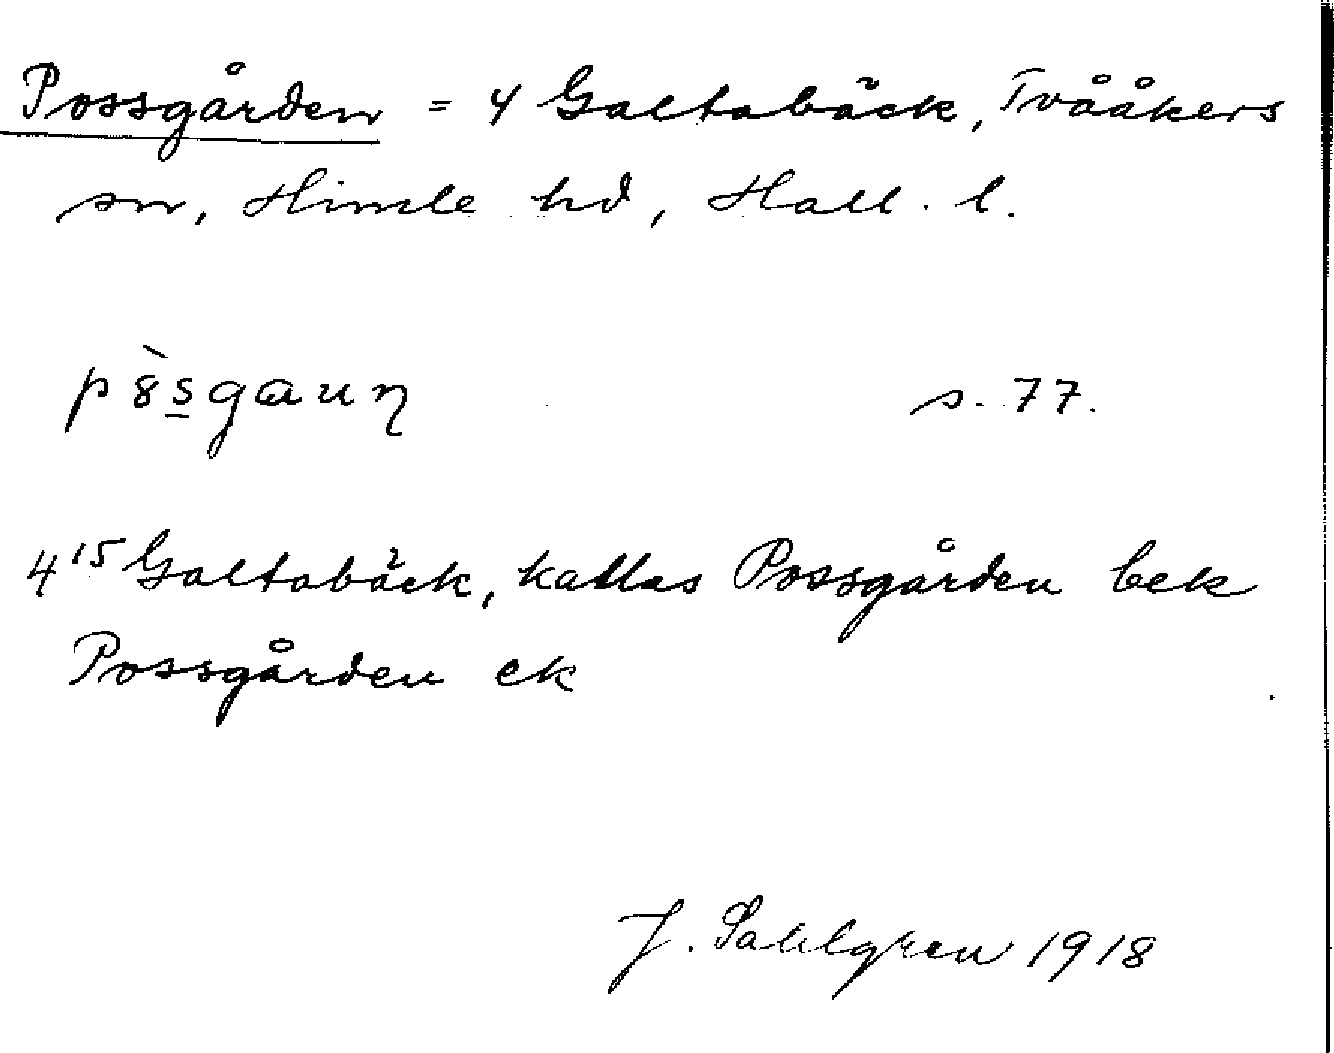 Possgården = 4 Galtabäck, Tvååkers
sn, Himle hd, Hall. l.
p8̀s̲gaun s. 77.
4¹⁵ Galtabäck, kallas Possgården bek
Possgården ek
J. Sahlgren 1918